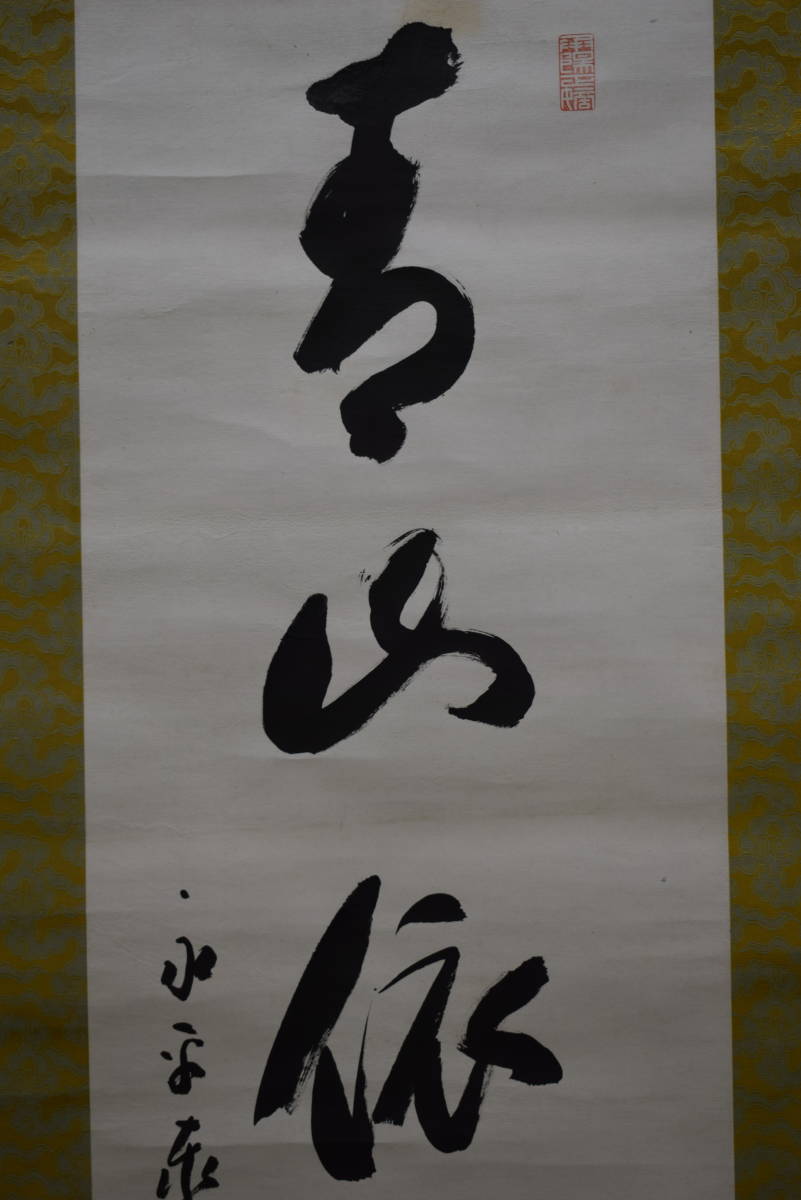 青山依
永平泰